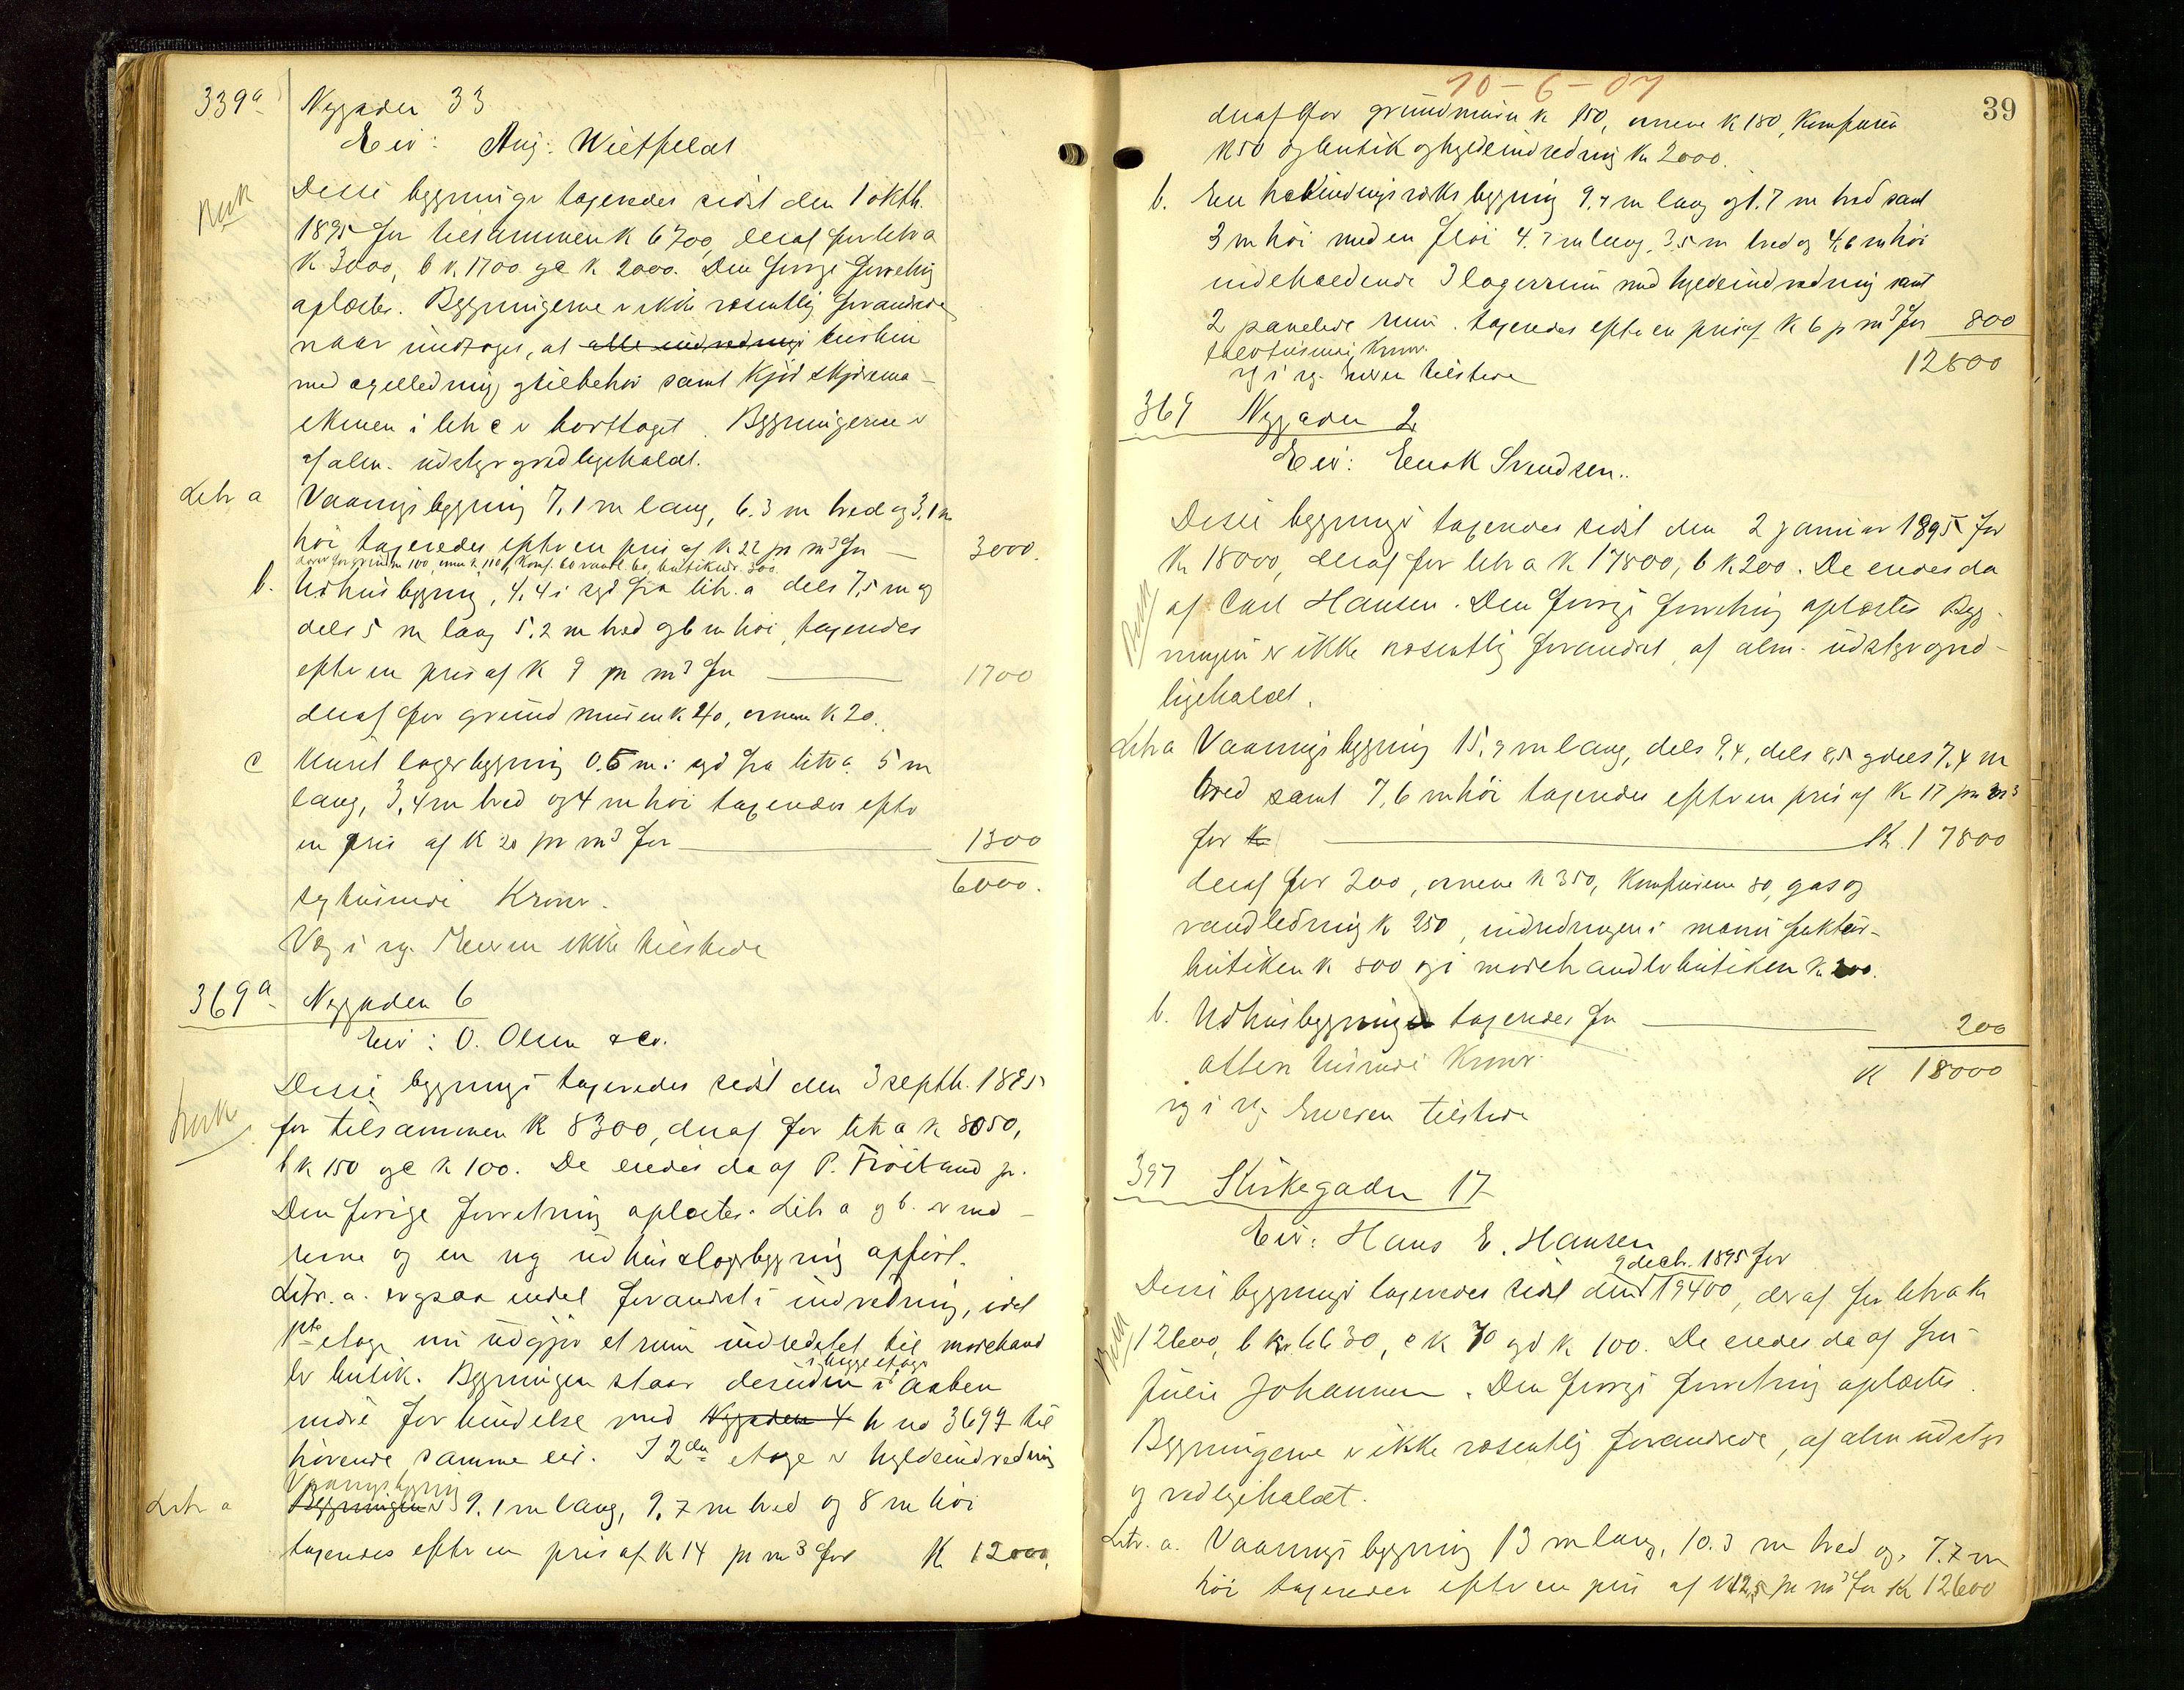 339a Nygaden 33
Eier: Aug: Wietfeldt
Disse bygninger taxeredes sidst den 1 oktb.
1895 for tilsammen k 6700, deraf for litr a
k 3000, b k. 1700 og c k 2000. Den forrige forretning
oplæstes. Bygningerne er ikke væsentlig forandrede
naar undtages, at alle indredninger
med ledning og tilbehør samt Kjød
i litr c er borttaget. Bygningerne er
af alm. udstyr og vedligeholdt.
Litr a Vaaningsbygning 7,1 m lang, 6.3 m bred og 3,1 m
høi taxeredes efter en pris af k 22 pr m3 for — 3000.
b. Udhusbygning, 4,4 i syd fra litr. a dels 7,5 m og
dels 5 m lang 5.2 m bred og 6 m høi, taxeredes
efter en pris af k 9 pr m3 for — 1700
deraf for grundmuren k 40, ovnene k 20.
c Muret lagerbygning 0.5 m i syd fra litr a. 5 m
lang, 3,4 m bred og 4 m høi taxeredes efter
en pris af k 20 pr m3 for — 1300
6000.
sextusinde Kroner.
Vej i reg. Eieren ikke tilstede
369a Nygaden 6
Eier: O. Olsen & Co.
Disse bygninger taxeredes sidst den 3 septb. 1895
for tilsammen k 8300, deraf for litr a k 8050,
b k 150 og c k 100. De eiedes da af P. Frøiland jr.
Den forrige forretning oplæstes. Litr a og b. er ned-
revne og en ny udhus & lagerbygning opført.
Litr. a. er ogsaa endel forandret i indredning, idet
1ste etage nu udgjør et rum indredet til
butik. Bygningen staar desuden i begge etager i aaben
indre forbindelse med Nygaden 4 br no 369 til-
hørende samme eier. I 2den etage er hyldeindredning
Vaaningsbygning
Litr a Bygningen er 9.1 m lang, 9.7 m bred og 8 m høi
taxeredes efter en pris af k 14 pr m3 for K 12000.
10-6-07
39
deraf for grundmuren k 150, ovnene k 180, Komfuren
k 50 og butik og hyldeindredning kr 2000.
b. En bygning 9.9 m lang og 1.7 m bred samt
3 m høi med en fløi 4.7 m lang, 3.5 m bred og 4,6 m høi
indeholdende 3 lagerrum med hyldeindredning samt
2 panelede rum. taxeredes efter en pris af k 6 pr m3 for 800
tolvtusinde Kroner. 12800
vej i reg. Eieren tilstede
369 Nygaden 2
Eier: Enok Svendsen..
Disse bygninger taxeredes sidst den 2 januar 1895 for
kr 18000, deraf for litr a k 17800, b k 200. De eiedes da
af Carl Hansen. Den forrige forretning oplæstes Byg-
ningen er ikke væsentlig forandret, af alm. udstyr og ved-
ligeholdt.
Litr a Vaaningsbygning 15,9 m lang, dels 9,4, dels 8,5 og dels 7,4 m
bred samt 7,6 m høi taxeredes efter en pris af k 17 pr m3
for k — K. 17800
deraf for 200, ovnene k 350, Komfurene 80, gas og
vandledning k 250, indredningen i manufaktur-
butiken k 800 og i butiken k 200.
b. Udhusbygningen taxeredes for — 200
atten tusinde Kroner. K 18000
vej i reg Eieren tilstede
397 Kirkegaden 17
Eier: Hans E. Hansen
9 decb. 1895 for
Disse bygninger taxeredes sidst den 19400, deraf for litr a k
12600, b kr 6630, c k 70 og d k 100. De eiedes da af fru
Julie Johannesen. Den forrige forretning oplæstes.
Bygningerne er ikke væsentlig forandrede, af alm udstyr
og vedligeholdt.
Litr. a. Vaaningsbygning 13 m lang, 10.3 m bred og 7.7 m
høi taxeredes efter en pris af k 12,5 pr m3 for K 12600